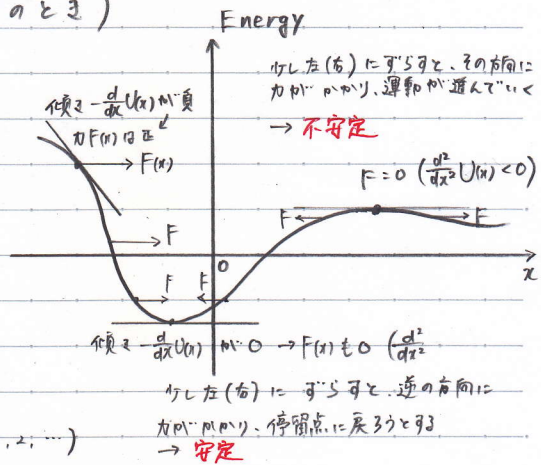 のとき)
Energy
少し左(右)にずらすと、その方向に
力がかかり、運動が進んでいく
→ 不安定
傾き -d/dx U(x) が負
力F(x)は正
F(x)
F=0 (d²/dx² U(x)<0)
F
F
F
F
F
0
x
傾き -d/dx U(x) が0 → F(x)も0 (d²/dx²
少し左(右)に ずらすと、逆の方向に
力がかかり、停留点に戻ろうとする
→ 安定
,2,…)